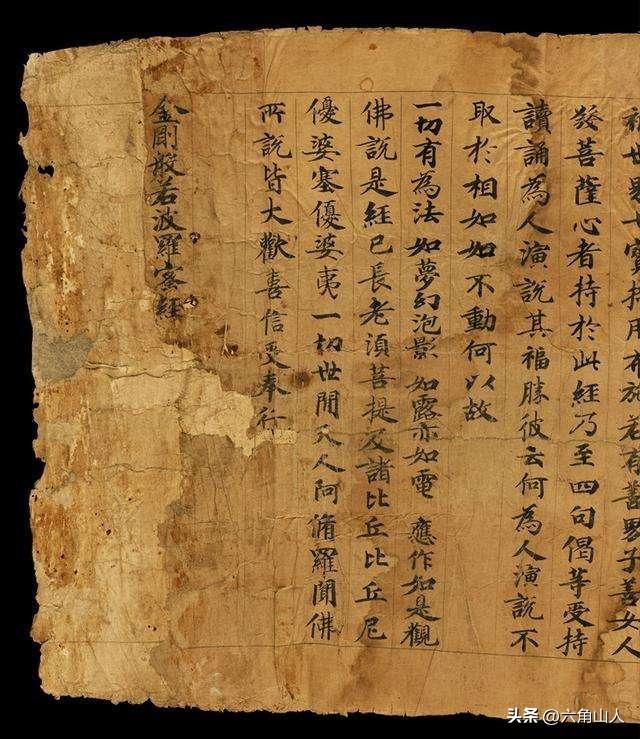 世界七寶持用布施若有善男子善女人
發菩薩心者持於此經乃至四句偈等受持
讀誦為人演說其福勝彼云何為人演說不
取於相如如不動何以故
一切有為法 如夢幻泡影 如露亦如電 應作如是觀
佛說是經已長老須菩提及諸比丘比丘尼
優婆塞優婆夷一切世間天人阿脩羅聞佛
所說皆大歡喜信受奉行
金剛般若波羅蜜經
头条 @六角山人